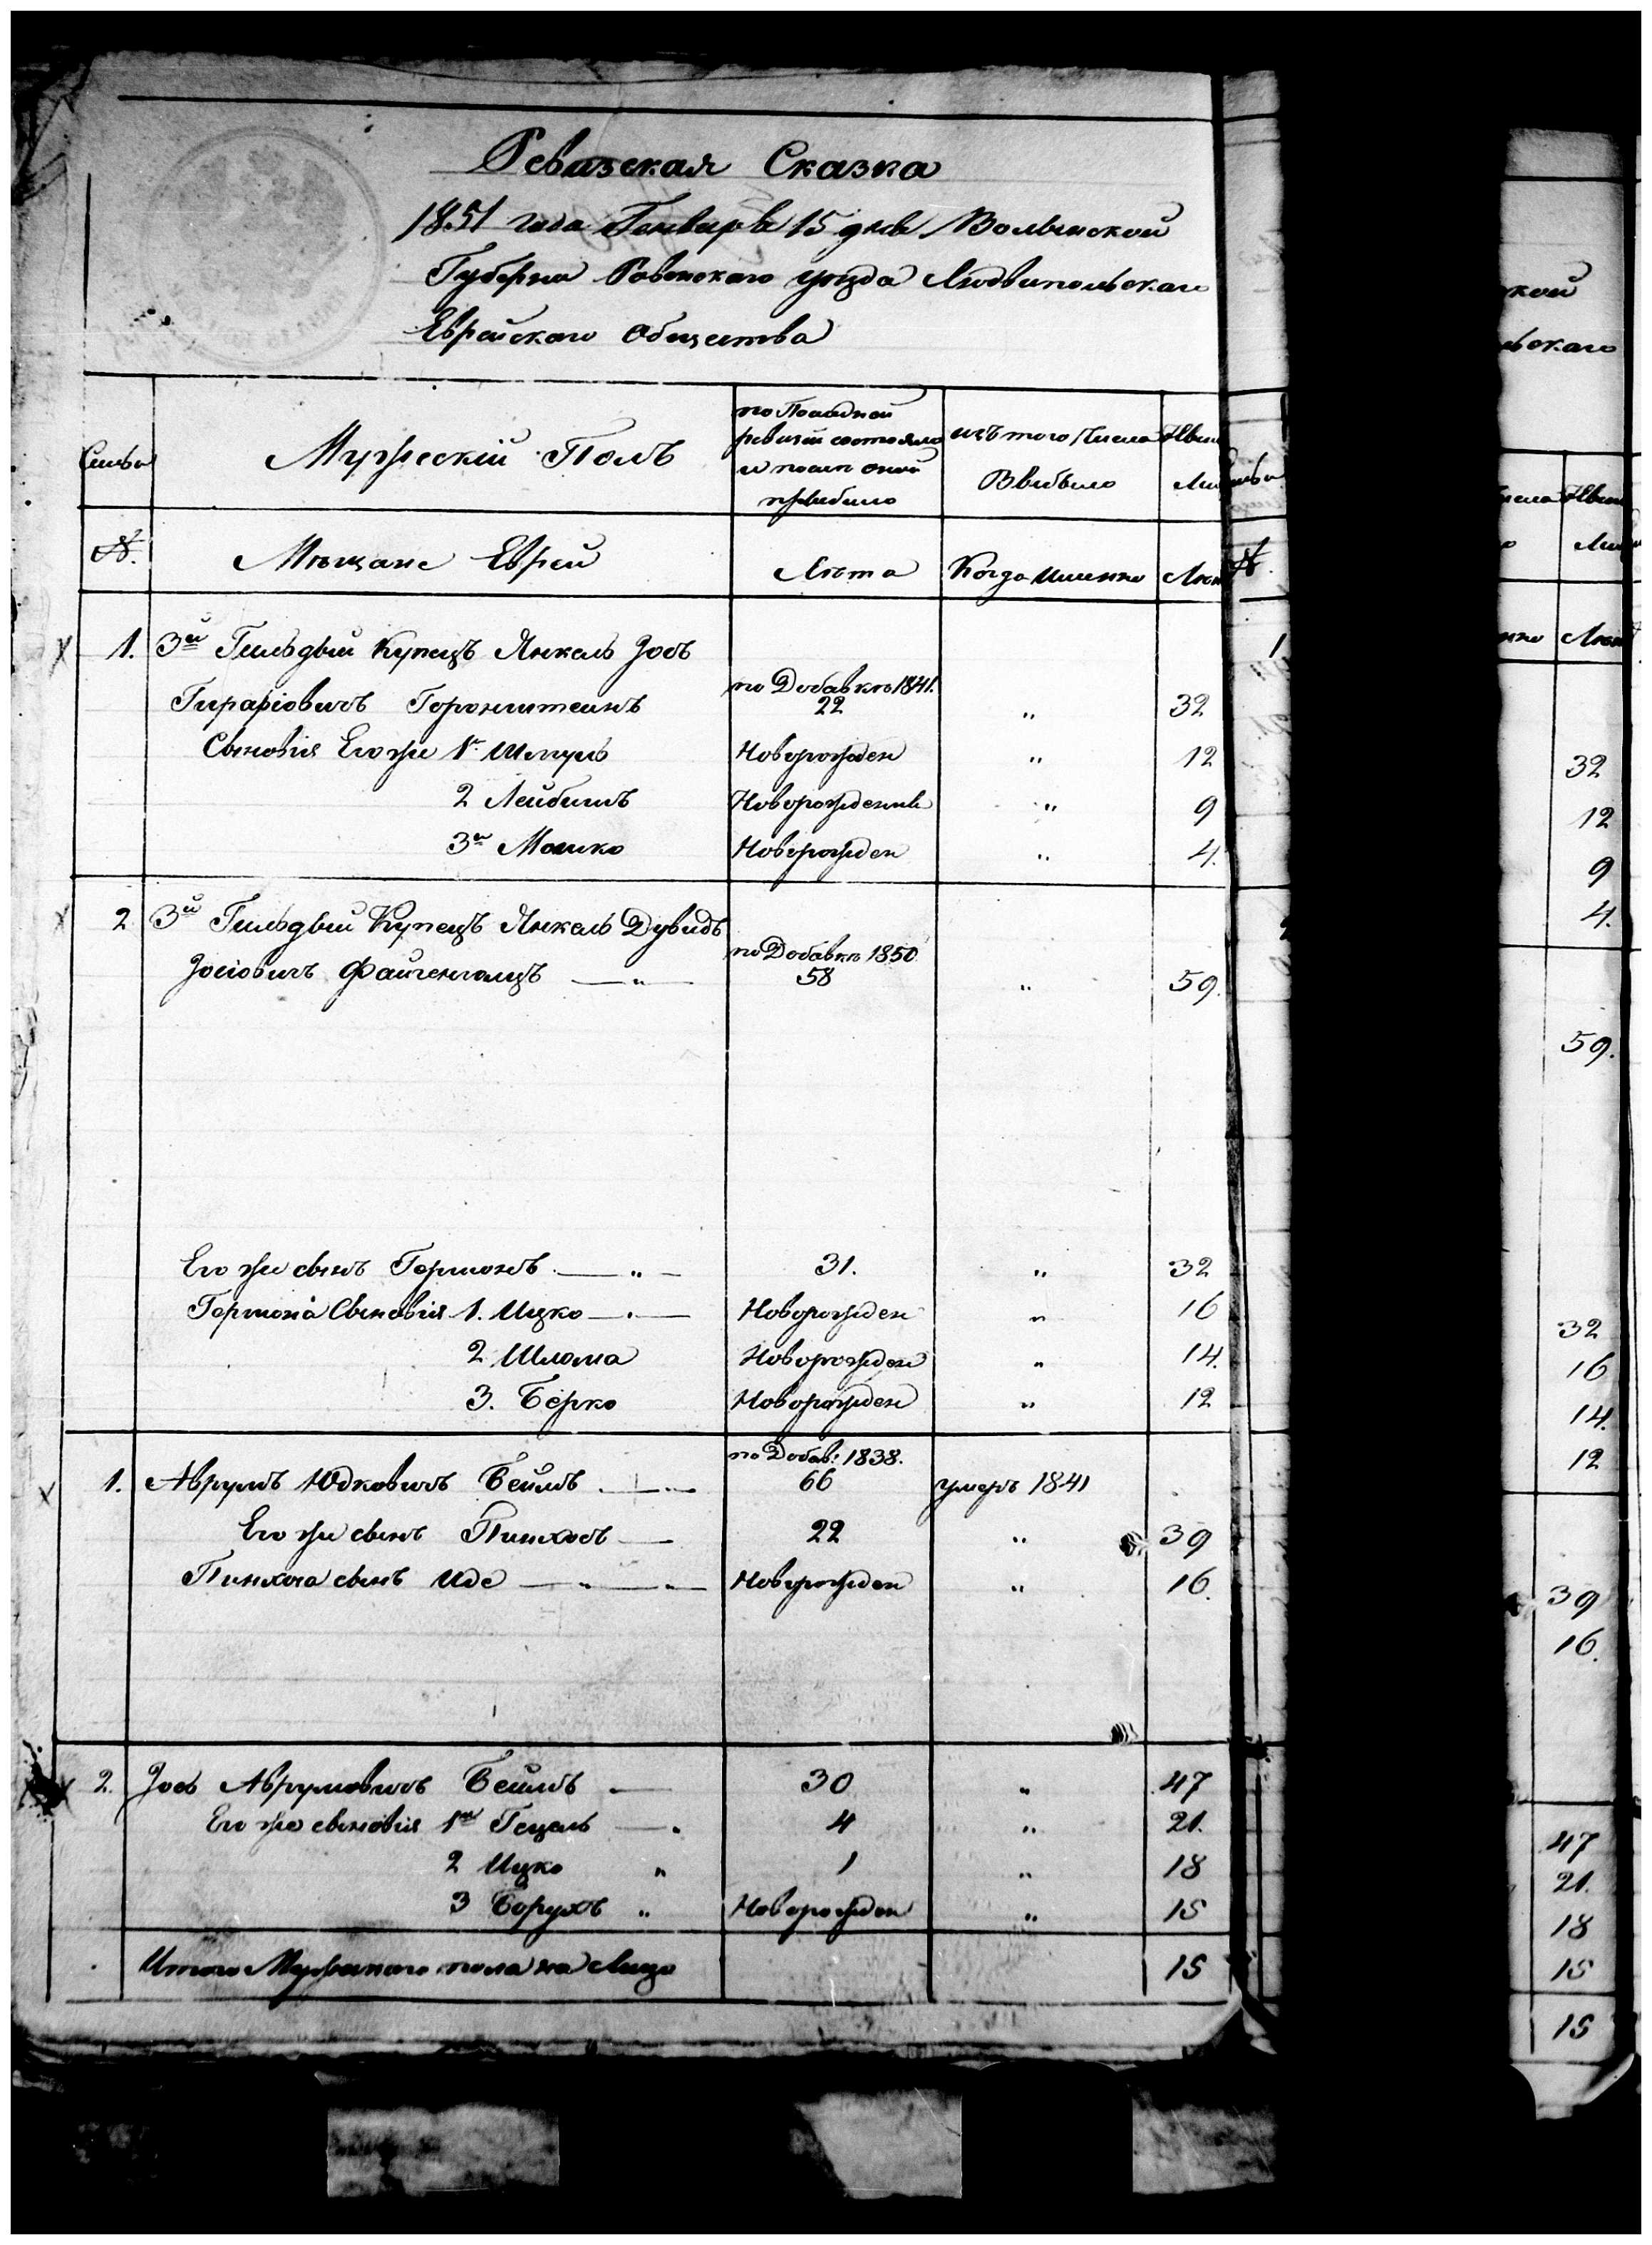 Ревизская Сказка
1851 года Генваря 15 дня Волынской
Губерни Ровенского уезда Людвипольского
Еврейского Общества
Семьи
Мужескій Полъ
по Последней
ревизіи состояло
и после оной
прибыло
изъ того Числа
Ввибыло
№.
Мещане Евреи
Лета
Когда Именно
1. 3й Гильдыи Купецъ Янкель Зось
Гершковичъ Горонштеинъ
по Добавке 1841.
22 „ 32
Сыновія Его же 1й Шмуль Новорожден „ 12
2 Лейбишъ Новорожденнь „ 9
3й Мошко Новорожден „ 4.
2 3й Гильдыи Купецъ Янкель Дувидъ
Зосіовичъ Файгенгольцъ — „ —
по Добавке 1850
58 „ 59.
Его же сынъ Гершонъ — „ — 31. „ 32
Гершона Сыновія 1. Ицко — „ — Новорожден „ 16
2 Шлома Новорожден „ 14.
3. Берко Новорожден „ 12
по Добав: 1838.
1. Аврумъ Юдковичъ Беилъ 66 умеръ 1841
Его же сынъ Пинхосъ — 22 „ 39
Пинхоса сынъ Иде — „ — „ — Новорожден „ 16.
2. Зось Аврумовичъ Беилъ — 30 „ 47
Его же сыновія 1й Гецель — „ 4 „ 21.
2 Ицко „ 1 „ 18
3 Борухъ „ Новорожден „ 15
Итого Мужескаго пола на Лицо 15
1
ской
ьскаго
32
12
9
4.
59.
32
16
14.
12
39
16.
47
21.
18
15
15